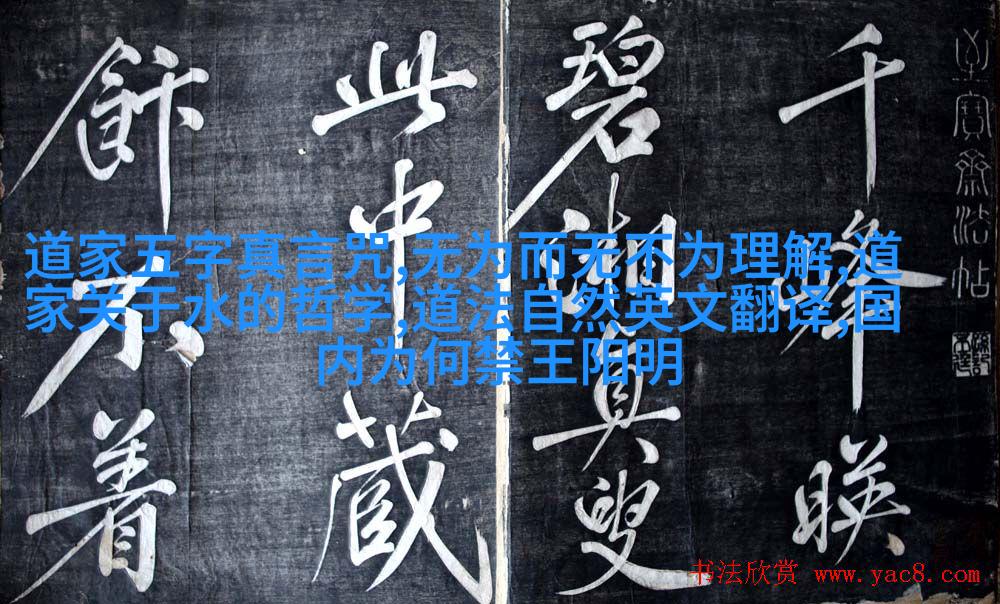 道家五字真言咒,无为而无不为理解,道
家关于水的哲学,道法自然英文翻译,国
内为何禁王阳明
千峯暎
碧湘真叟
此中藏
飰不煮
至寶齋法帖
书法欣赏 www.yac8.com